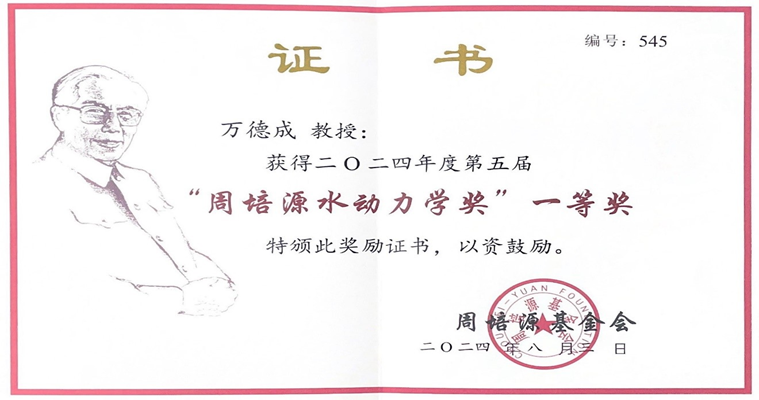 编号：545
证 书
万德成 教授：
获得二〇二四年度第五届
“周培源水动力学奖”一等奖
特颁此奖励证书，以资鼓励。
周培源基金会
二〇二四 年 八 月 三 日
CHOU PEI-YUAN FOUNDATION
周培源基金会